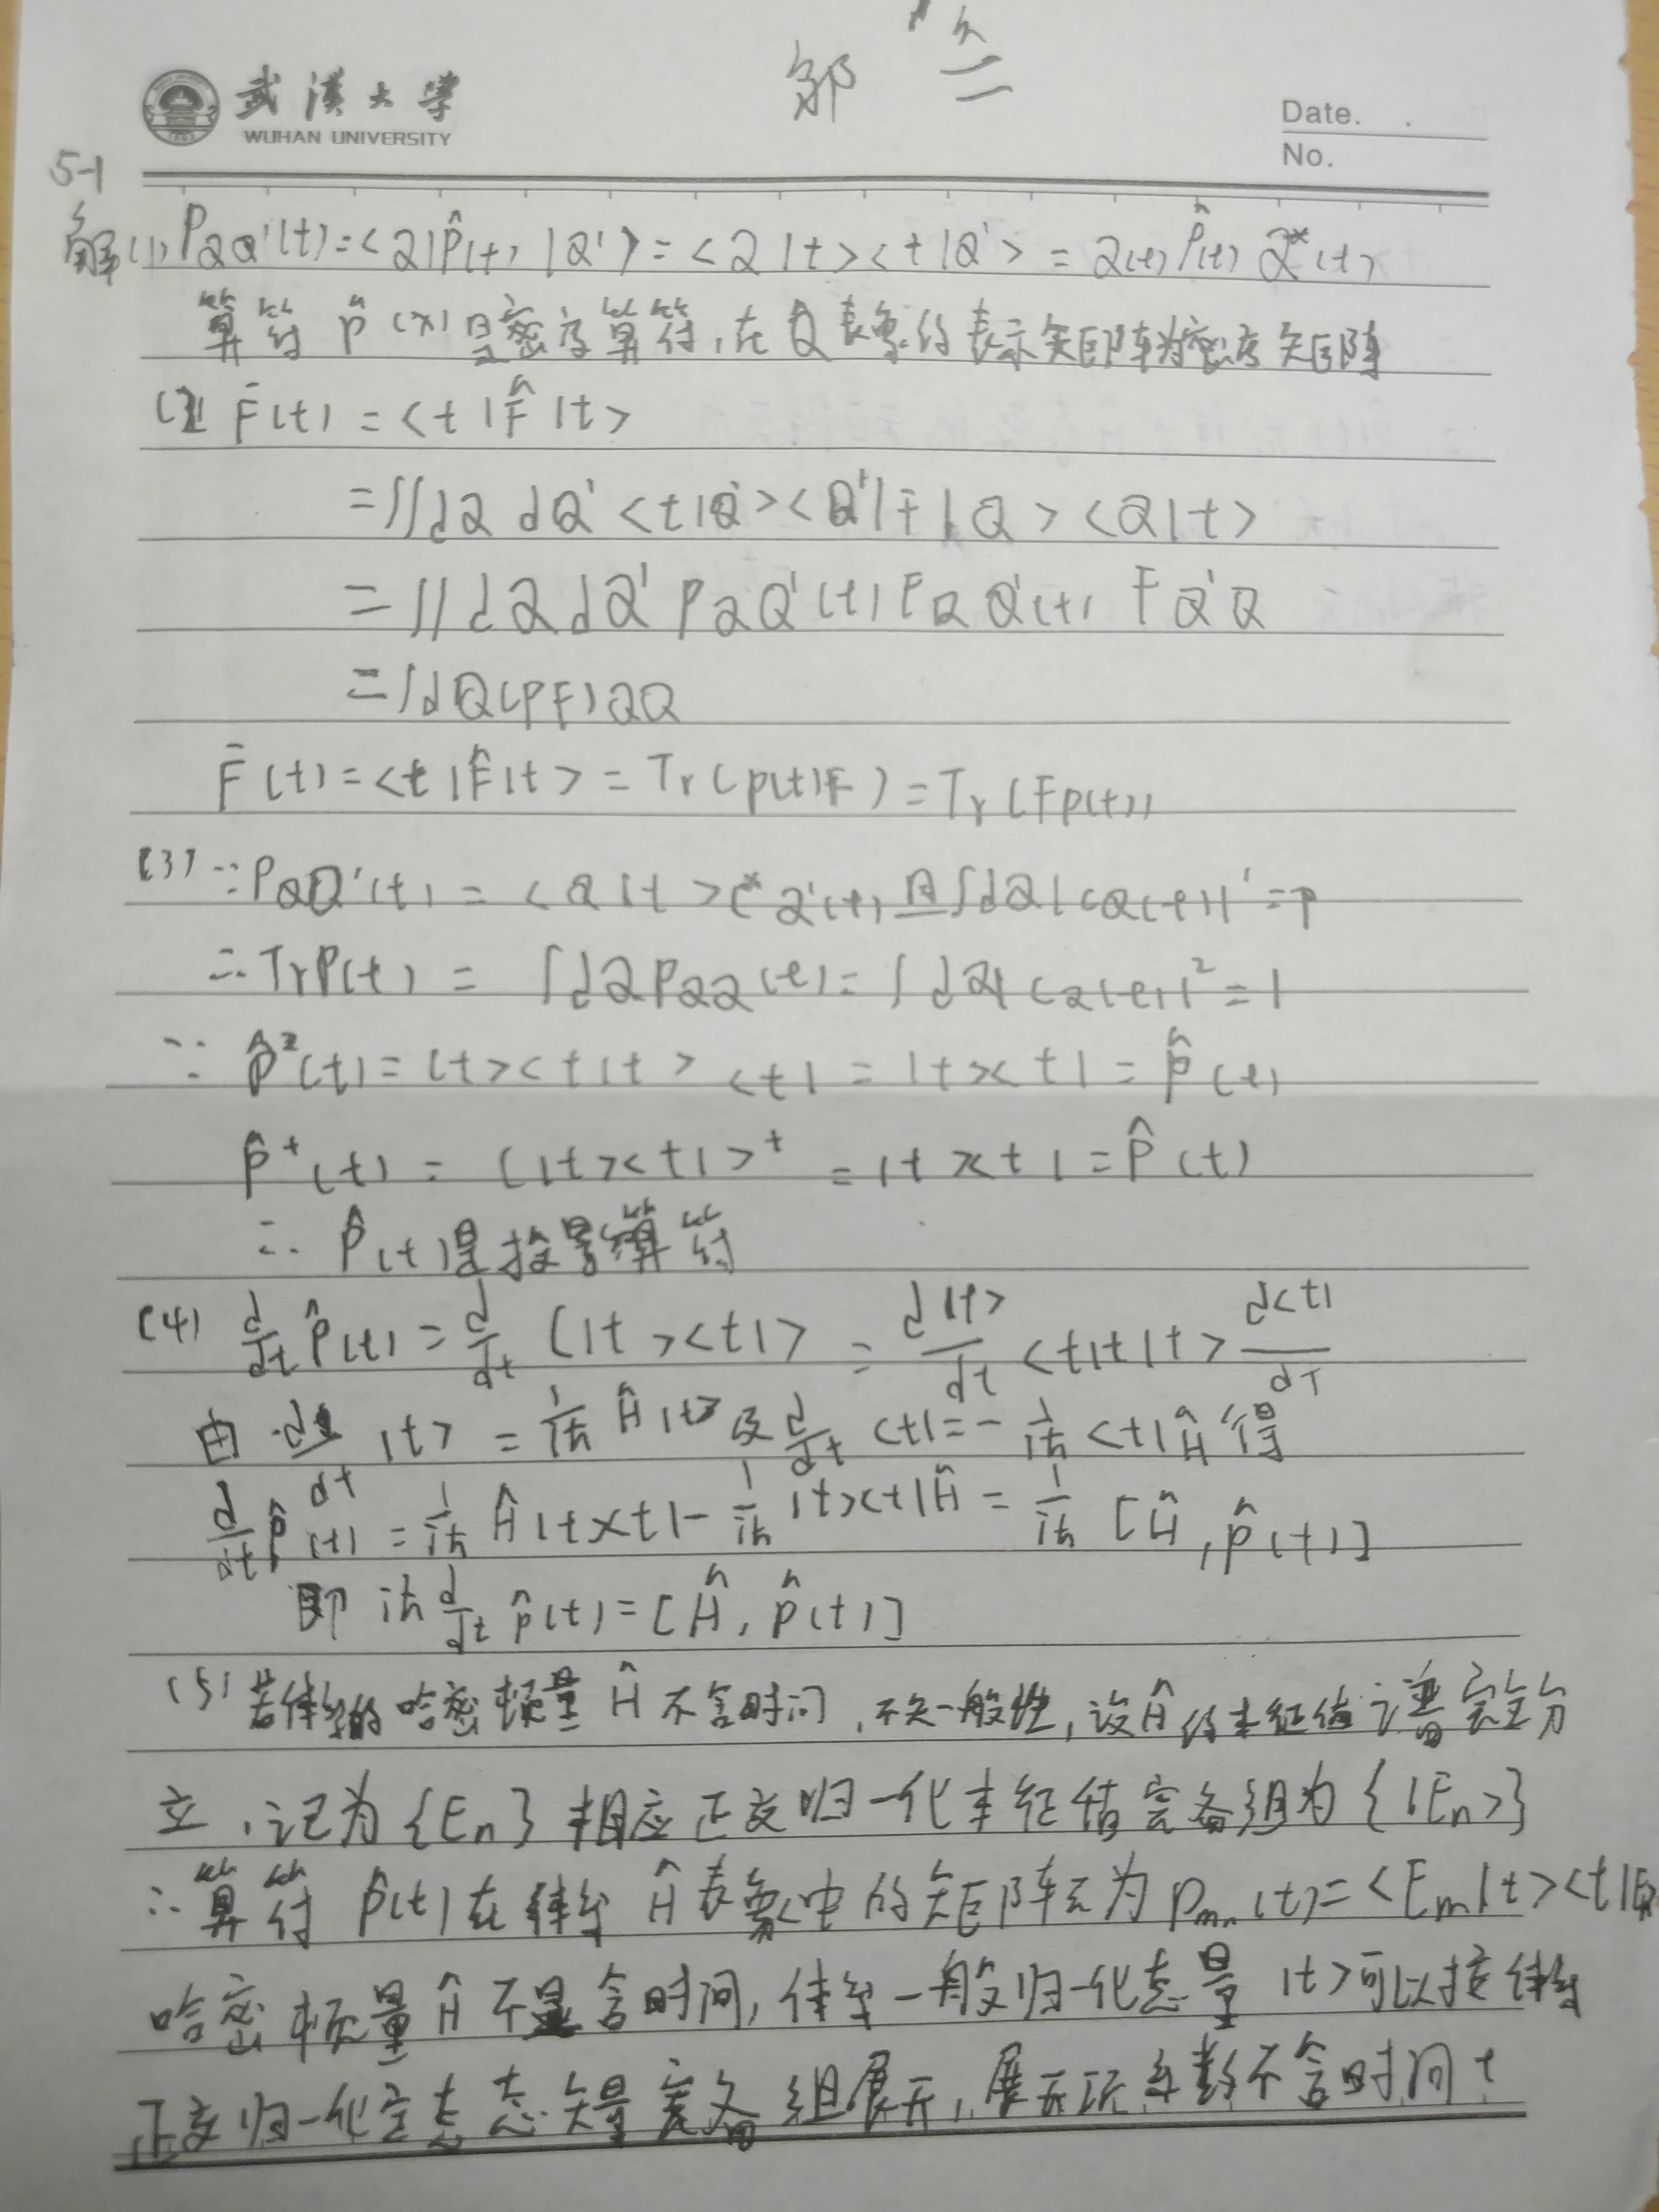 武漢大学
WUHAN UNIVERSITY
Date.
No.
5-1
解(1) PQQ'(t)=<Q|P̂(t)|Q'>=<Q|t><t|Q'> = Q(t) P̂(t) Q*(t)
算符 P̂(x)是密度算符,在Q表象的表示矩阵为密度矩阵
(2) F̄(t) = <t|F̂|t>
=∫∫dQ dQ' <t|Q'><Q'|F̂|Q><Q|t>
=∫∫dQdQ' PQQ'(t) FQQ'(t) FQ'Q
=∫dQ(PF)QQ
F̄(t)=<t|F̂|t> = Tr(p(t)F)=Tr(Fp(t))
(3) ∵PQQ'(t) = <Q|t>C*Q'(t) 且∫dQ|CQ(t)|'=P
∴TrP(t) = ∫dQPQQ(t)=∫dQ|CQ(t)|²=1
∵ P̂²(t)=|t><t|t><t|=|t><t|=P̂(t)
P̂⁺(t) = (|t><t|>⁺ = |t><t|=P̂(t)
∴ P̂(t)是投影算符
(4) d/dt P̂(t)=d/dt (|t><t|> = d|t>/dt <t|t|t> d<t|/dT
由 d/dt |t> = 1/iħ Ĥ|t> 及d/dt <t|=-1/iħ <t|Ĥ 得
d/dt P̂(t) = 1/iħ Ĥ|t><t|-1/iħ |t><t|Ĥ = 1/iħ [Ĥ,P̂(t)]
即 iħ d/dt P̂(t)=[Ĥ,P̂(t)]
(5) 若体系的哈密顿量 Ĥ 不含时间,不失一般性,设Ĥ的本征值谱完全分
立,记为{En}相应正交归一化本征值完备组为{|En>}
∴算符 P̂(t)在体系 Ĥ表象中的矩阵元为Pmn(t)=<Em|t><t|En
哈密顿量Ĥ不显含时间,体系一般归一化态量 |t>可以按体系
正交归一化定态态矢量完备组展开,展开项系数不含时间t